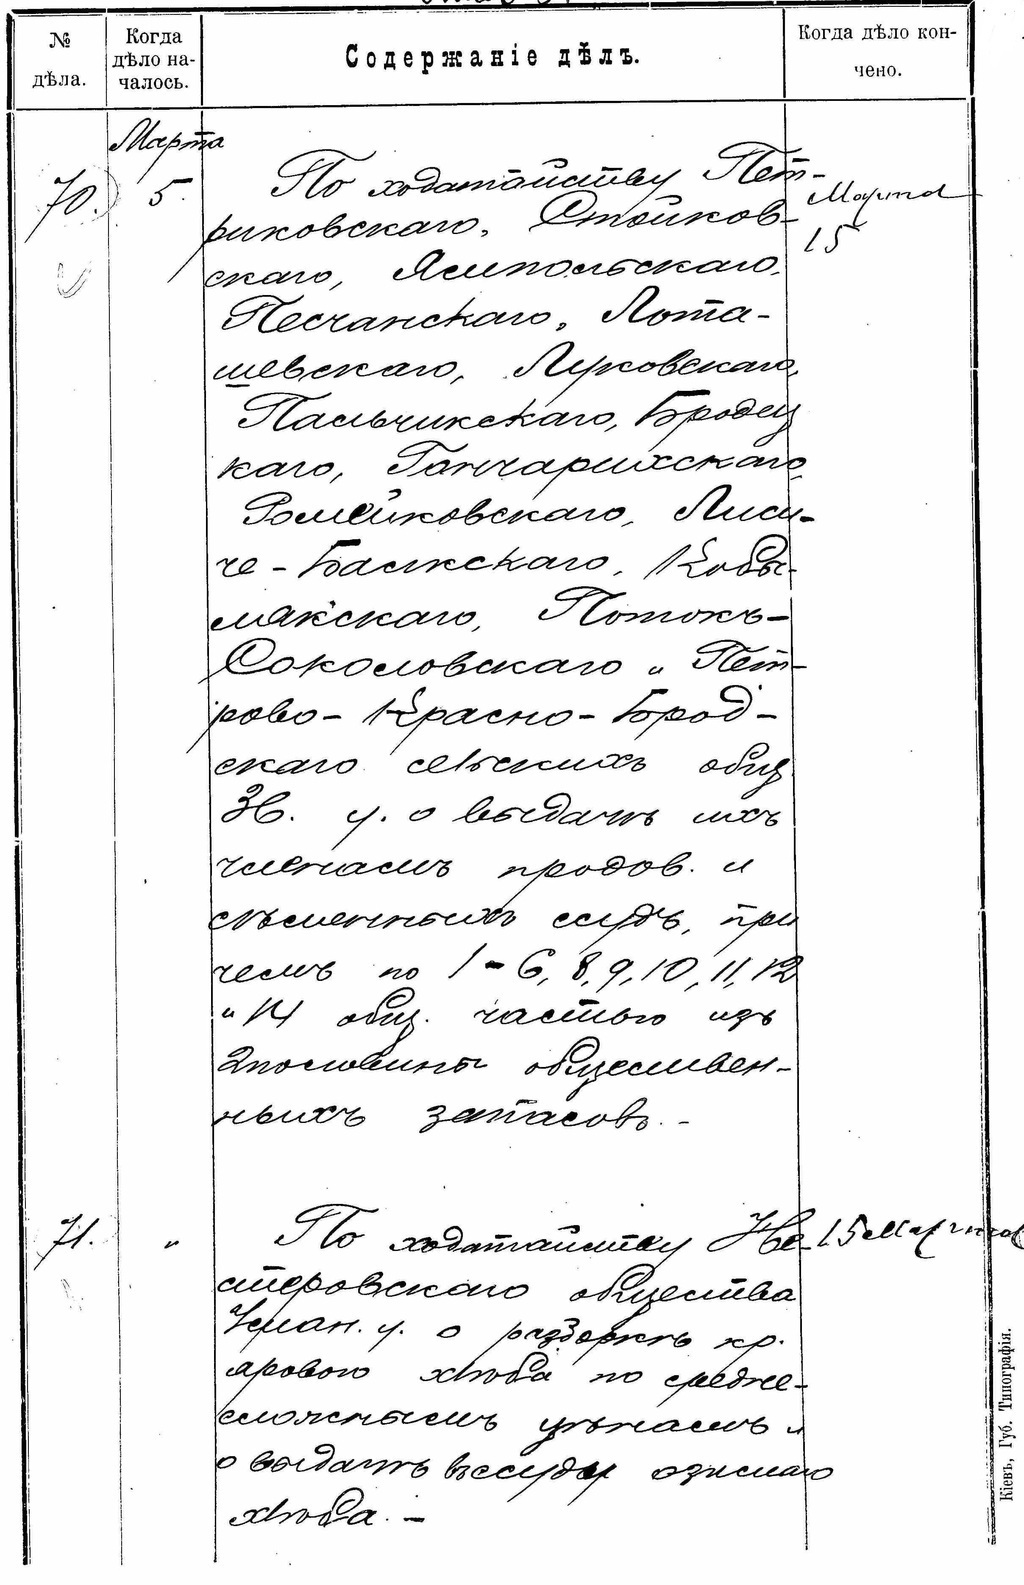 № дѣла.
Когда дѣло на-чалось.
Содержаніе дѣлъ.
Когда дѣло кон-чено.
Марта
70. 5. По ходатайству Пет- Марта
риковскаго, Стойков- 15
скаго, Ямпольскаго,
Песчанскаго, Пота-
шевскаго, Лрковскаго,
Пальчикскаго, Бродец
каго, Гончарихскаго,
Ромейковскаго, Лиси-
че-Балкскаго, Кобы-
лякскаго, Потокъ-
Соколовскаго и Пет-
рово-Красно-Брод-
скаго сельскихъ общ
Зв. у. о выдачѣ ихъ
членамъ продов. и
сѣменныхъ ссудъ, при
чемъ по 1-6, 8, 9, 10, 11, 12
и 14 общ. частью изъ
2 половины обществен-
ныхъ запасовъ. -
71. " По ходатайству Не- 15 Марта
стеровскаго общества
Уман. у. о разборкѣ кр.
ярового хлѣба по средне-
сложнымъ цѣнамъ и
о выдачѣ въ ссуду озимаго
хлѣба. -
Кіевъ, Губ. Типографія.